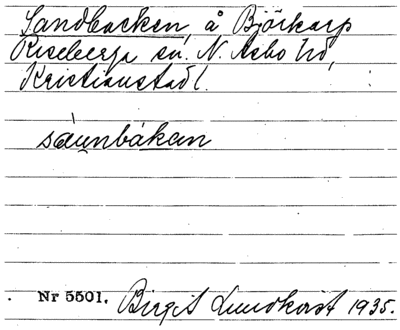 Sandbacken, å Björkarp
Riseberga sn. N. Åsbo hd,
Kristianstad l.
sàunbákan
Nr 5501. Birgit Lundkvist 1935.